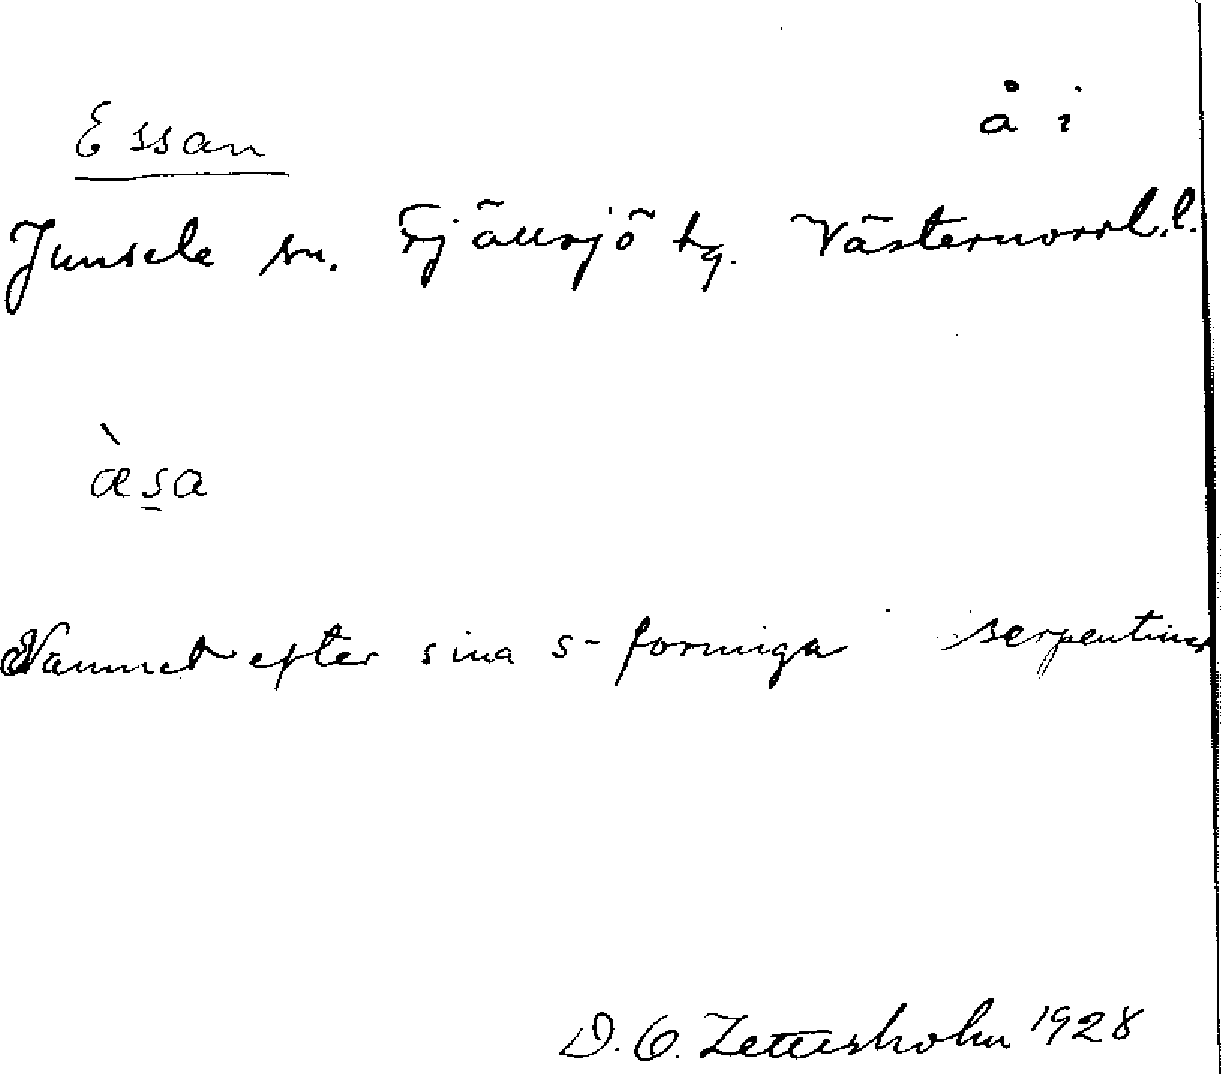 Essan å i
Junsele sn. Fjällsjö tg. Västernorrl. l.
æ̀s̠a
Namnet efter sina s-formiga serpentiner
D. O. Zetterholm 1928